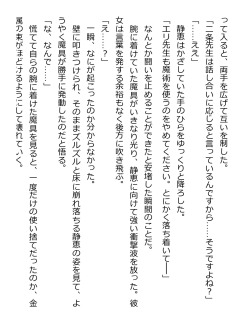 って入ると、両手を広げて互いを制した。
「二条先生は話し合いに応じると言っているんですから……そうですよね？」
「……ええ」
静恵はかざしていた手のひらをゆっくりと降ろした。
「エリ先生も魔術を使うのをやめてください。とにかく落ち着いて――」
なんとか闘いを止めることができたと安堵した瞬間のことだ。
腕に着けていた魔具がいきなり光り、静恵に向けて強い衝撃波を放った。彼
女は言葉を発する余裕もなく後方に吹き飛ぶ。
「え……？」
一瞬、なにが起こったのか分からなかった。
壁に叩きつけられ、そのままズルズルと床に崩れ落ちる静恵の姿を見て、よ
うやく魔具が勝手に発動したのだと悟る。
「な、なんで……」
慌てて自らの腕に着けた魔具を見ると、一度だけの使い捨てだったのか、金
属の束がほどけるようにして壊れていく。